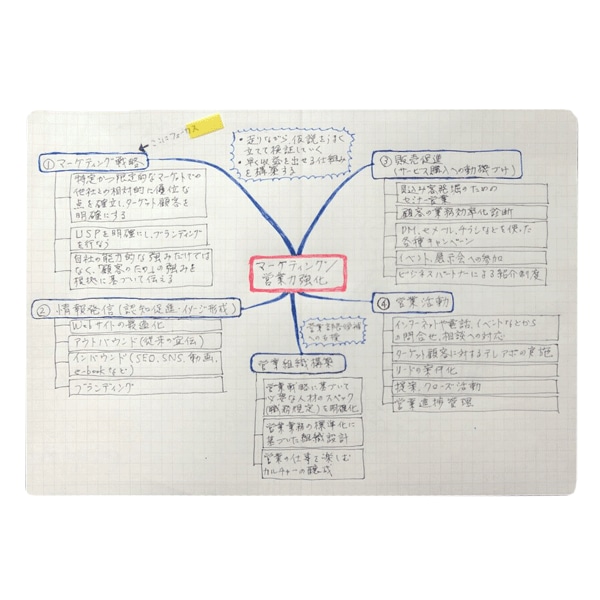 ここにフォーカス
・走りながら、仮説をうまく
立てて検証していく
・早く収益を出せる仕組み
を構築する
① マーケティング戦略
特定かつ限定的なマーケットでの
他社との相対的な優位な
点を確立し、ターゲット顧客を
明確にする
USPを明確にし、ブランディング
を行なう
自社の能力的な強みだけでは
なく、「顧客のための強み」を
根拠に基づいて伝える
③ 販売促進
(サービス購入への動機づけ)
見込み客発掘のための
セミナー営業
顧客の業務効率化診断
DM、Eメール、チラシなどを使った
各種キャンペーン
イベント、展示会への参加
ビジネスパートナーによる紹介制度
マーケティング/
営業力強化
② 情報発信(認知促進・イメージ形成)
Webサイトの最適化
アウトバウンド(従来の宣伝)
インバウンド(SEO、SNS、動画、
e-bookなど)
ブランディング
④ 営業活動
インターネットや電話、イベントなどから
の問合せ、相談への対応
ターゲット顧客に対するテレアポの実施
リードの案件化
提案、クローズ活動
営業進捗管理
営業部長候補
への支援
営業組織構築
営業戦略に基づいて
必要な人材のスペック
(職務規定)を明確化
営業業務の標準化に
基づいた組織設計
営業の仕事を楽しむ
カルチャーの醸成